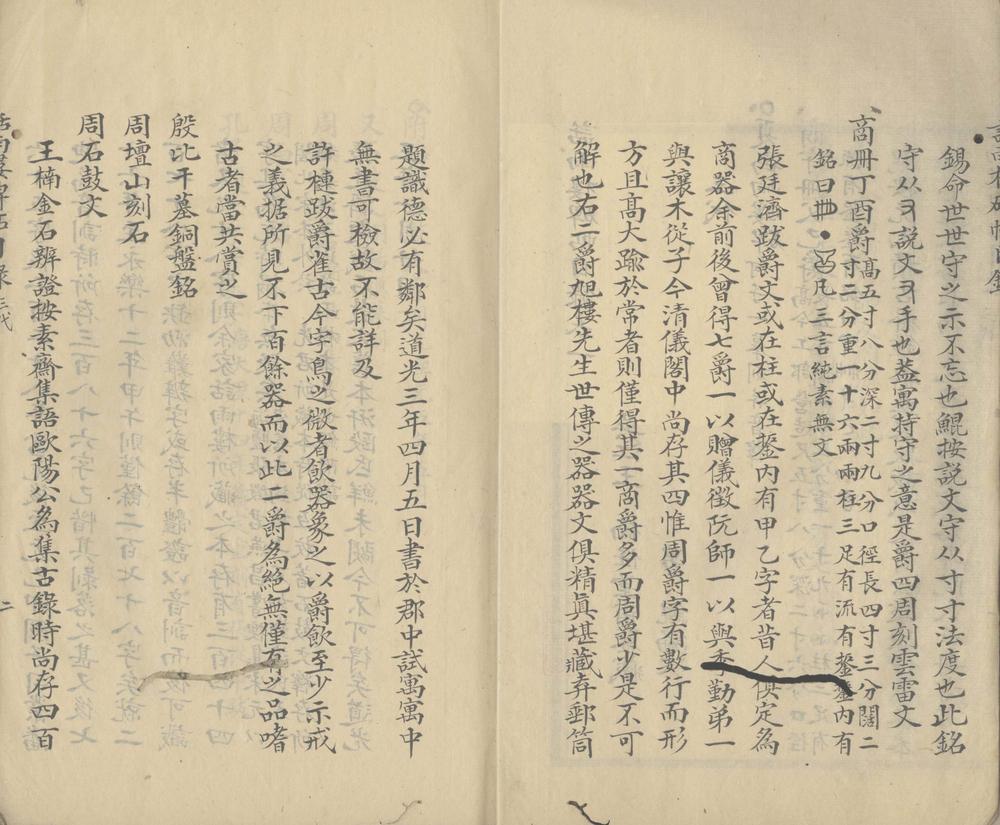 錫命世世守之示不忘也鯤按說文守从寸寸法度也此銘
守从又說文又手也葢寓持守之意是爵四周刻雲雷文
商冊丁酉爵高五寸八分深二寸九分口徑長四寸三分闊二
寸二分重一十六兩兩柱三足有流有鋬鋬內有
銘曰 凡三言純素無文
張廷濟跋爵文或在柱或在鋬內有甲乙字者昔人俱定為
商器余前後曾得七爵一以贈儀徵阮師一以與季勤弟一
與讓木從子今清儀閣中尚存其四惟周爵字有數行而形
方且高大踰於常者則僅得其一商爵多而周爵少是不可
解也右二爵旭樓先生世傳之器器文俱精眞堪藏弆郵筒
題識德必有鄰矣道光三年四月五日書於郡中試寓寓中
無書可檢故不能詳及
許槤跋爵雀古今字鳥之微者飲器象之以爵飲至少示戒
之義據所見不下百餘器而以此二爵為絕無僅有之品嗜
古者當共賞之
殷比干墓銅盤銘
周壇山刻石
周石鼓文
王楠金石辨證按素齋集語歐陽公為集古錄時尚存四百
目錄 三代
二